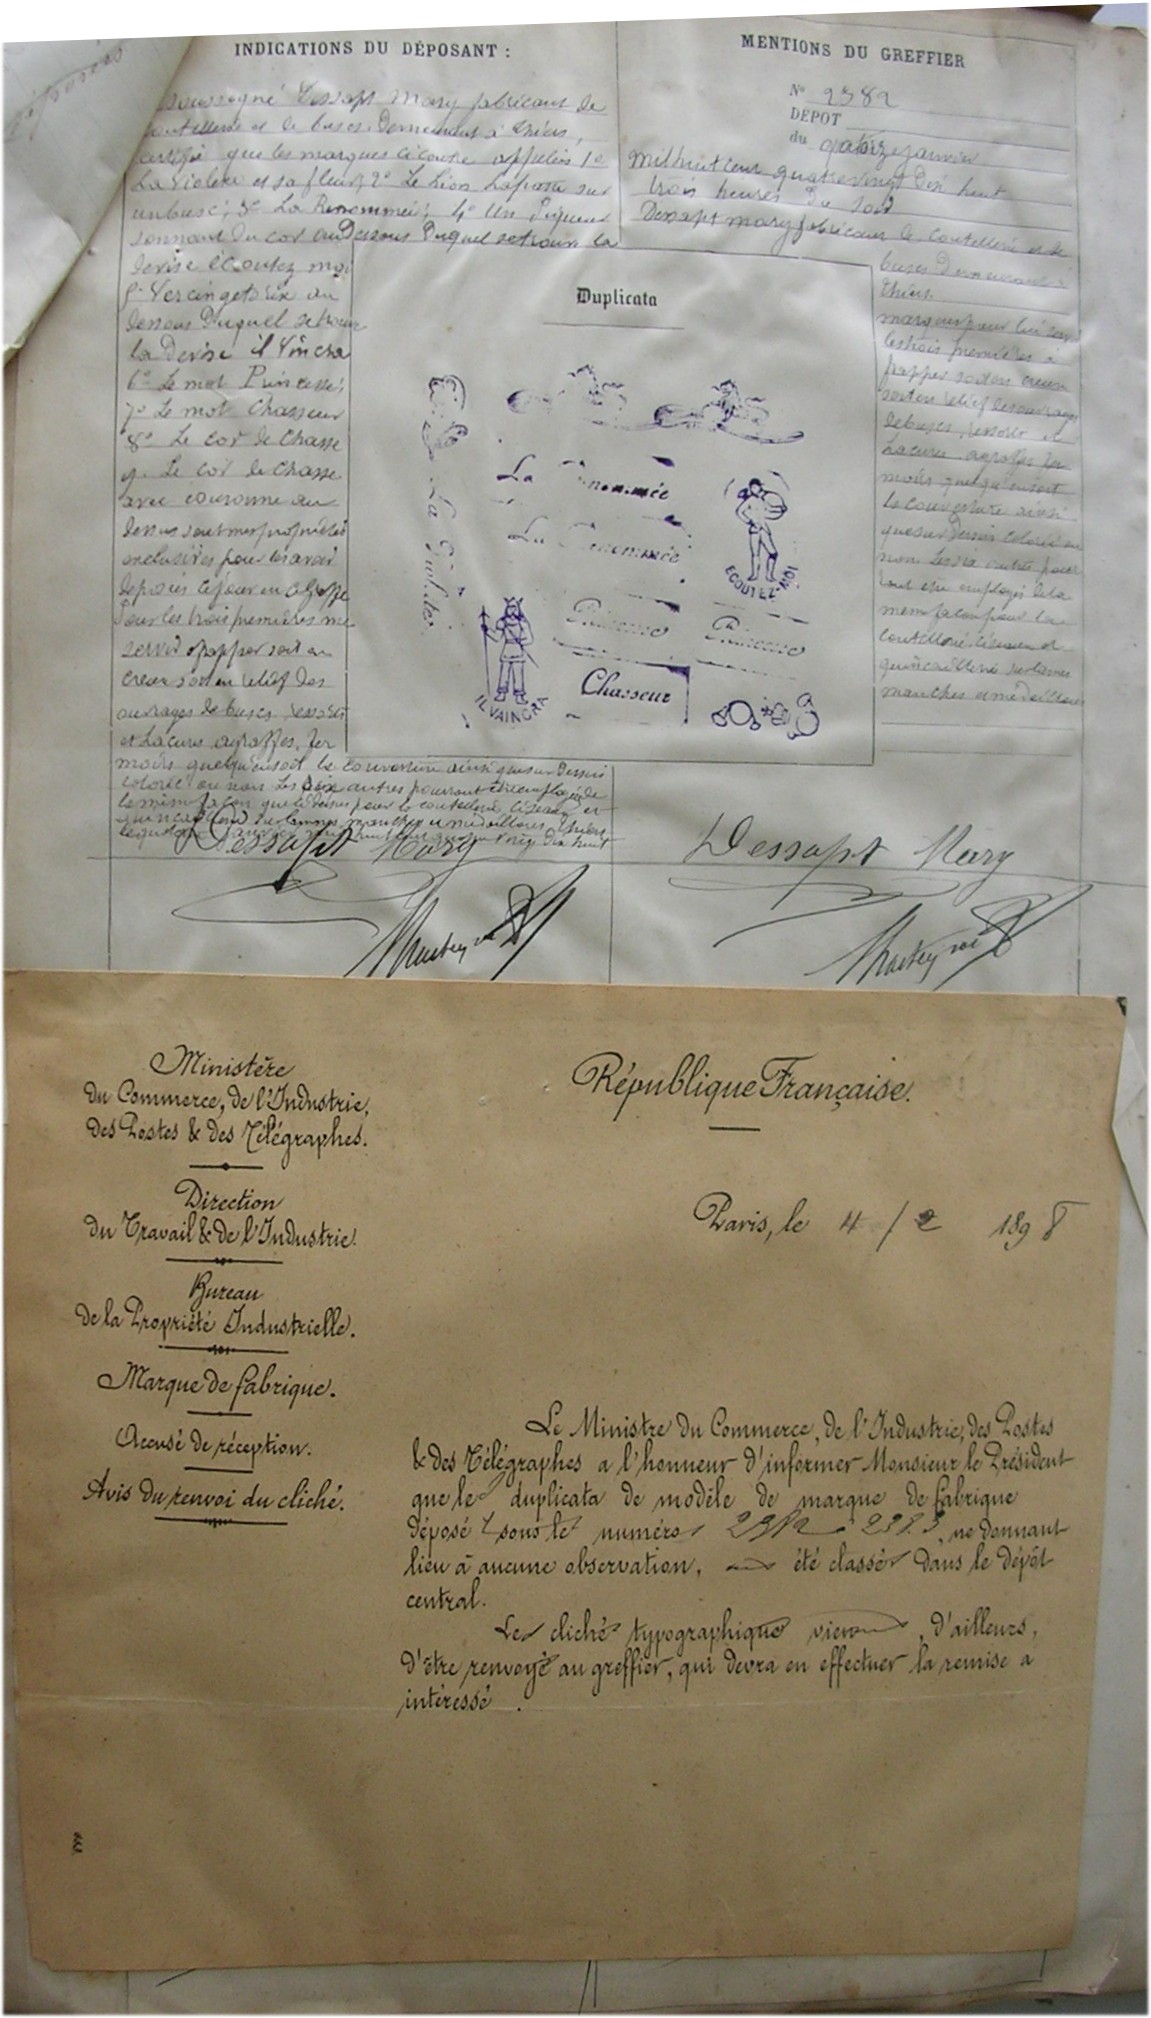 INDICATIONS DU DÉPOSANT :
soussigné Dessapt Mary fabricant de
coutellerie et de buscs Demeurant à thiers,
certifie que les marques ci contre appelées 1º
La violette et sa fleur, 2º Le Lion Lapatte sur
un busc; 3º La Renommée; 4º Un Piqueur
sonnant du cor au Dessous Duquel se trouve la
devise ecoutez moi
5º Vercingetorix au
dessous Duquel se trouve
la Devise il Vincra
6º Le mot Princesse;
7º Le mot Chasseur
8º Le cor de Chasse
9º Le cor de Chasse
avec couronne au
dessus sont mes propriétés
exclusives pour les avoir
déposées ce jour au Greffe
Pour les trois premières me
servir à frapper soit en
creux soit en relief des
ouvrages de buscs ressorts
et Lacures agraffes, fer
moirs quelqu'en soit la couverture ainsi que sur Dessin
colorié ou non Les six autres pourront être employées de
la même façon pour la coutellerie, Ciseaux et
quincaillerie sur lames manches et médailles, thiers
Dessapt Mary
MENTIONS DU GREFFIER
Nº 2382
DÉPOT
du quatorze janvier
mil huit cent quatre vingt Dix huit
trois heures Du soir
Dessapt mary fabricant de coutellerie et de
buscs Demeurant à
thiers
marques pour lui servir
les trois premières à
frapper soit en creux
soit en relief des ouvrages
de buscs, ressorts et
Lacures agraffes fer
moirs quelqu'en soit
la couverture ainsi
que sur Dessin colorié ou
non Les six autres pour
être employées de la
meme facon pour la
coutellerie Ciseaux et
quincaillerie sur lames
manches et médailles
Dessapt Mary
Duplicata
La Violette
La Renommée
La Renommée
ECOUTEZ-MOI
Princesse
Princesse
IL VAINCRA
Chasseur
Ministère
du Commerce, de l'Industrie,
des Postes & des Télégraphes.
Direction
du Travail & de l'Industrie.
Bureau
de la Propriété Industrielle.
Marque de fabrique.
Accusé de réception.
Avis du renvoi du cliché.
République Française.
Paris, le 4 / 2 1898
Le Ministre du Commerce, de l'Industrie, des Postes
& des Télégraphes a l'honneur d'informer Monsieur le Président
que les duplicata de modèle de marque de fabrique
déposés sous les numéros 2382 à 2383, ne donnant
lieu à aucune observation, ont été classés dans le dépôt
central.
Les clichés typographiques viennent, d'ailleurs,
d'être renvoyés au greffier, qui devra en effectuer la remise à
intéressé.